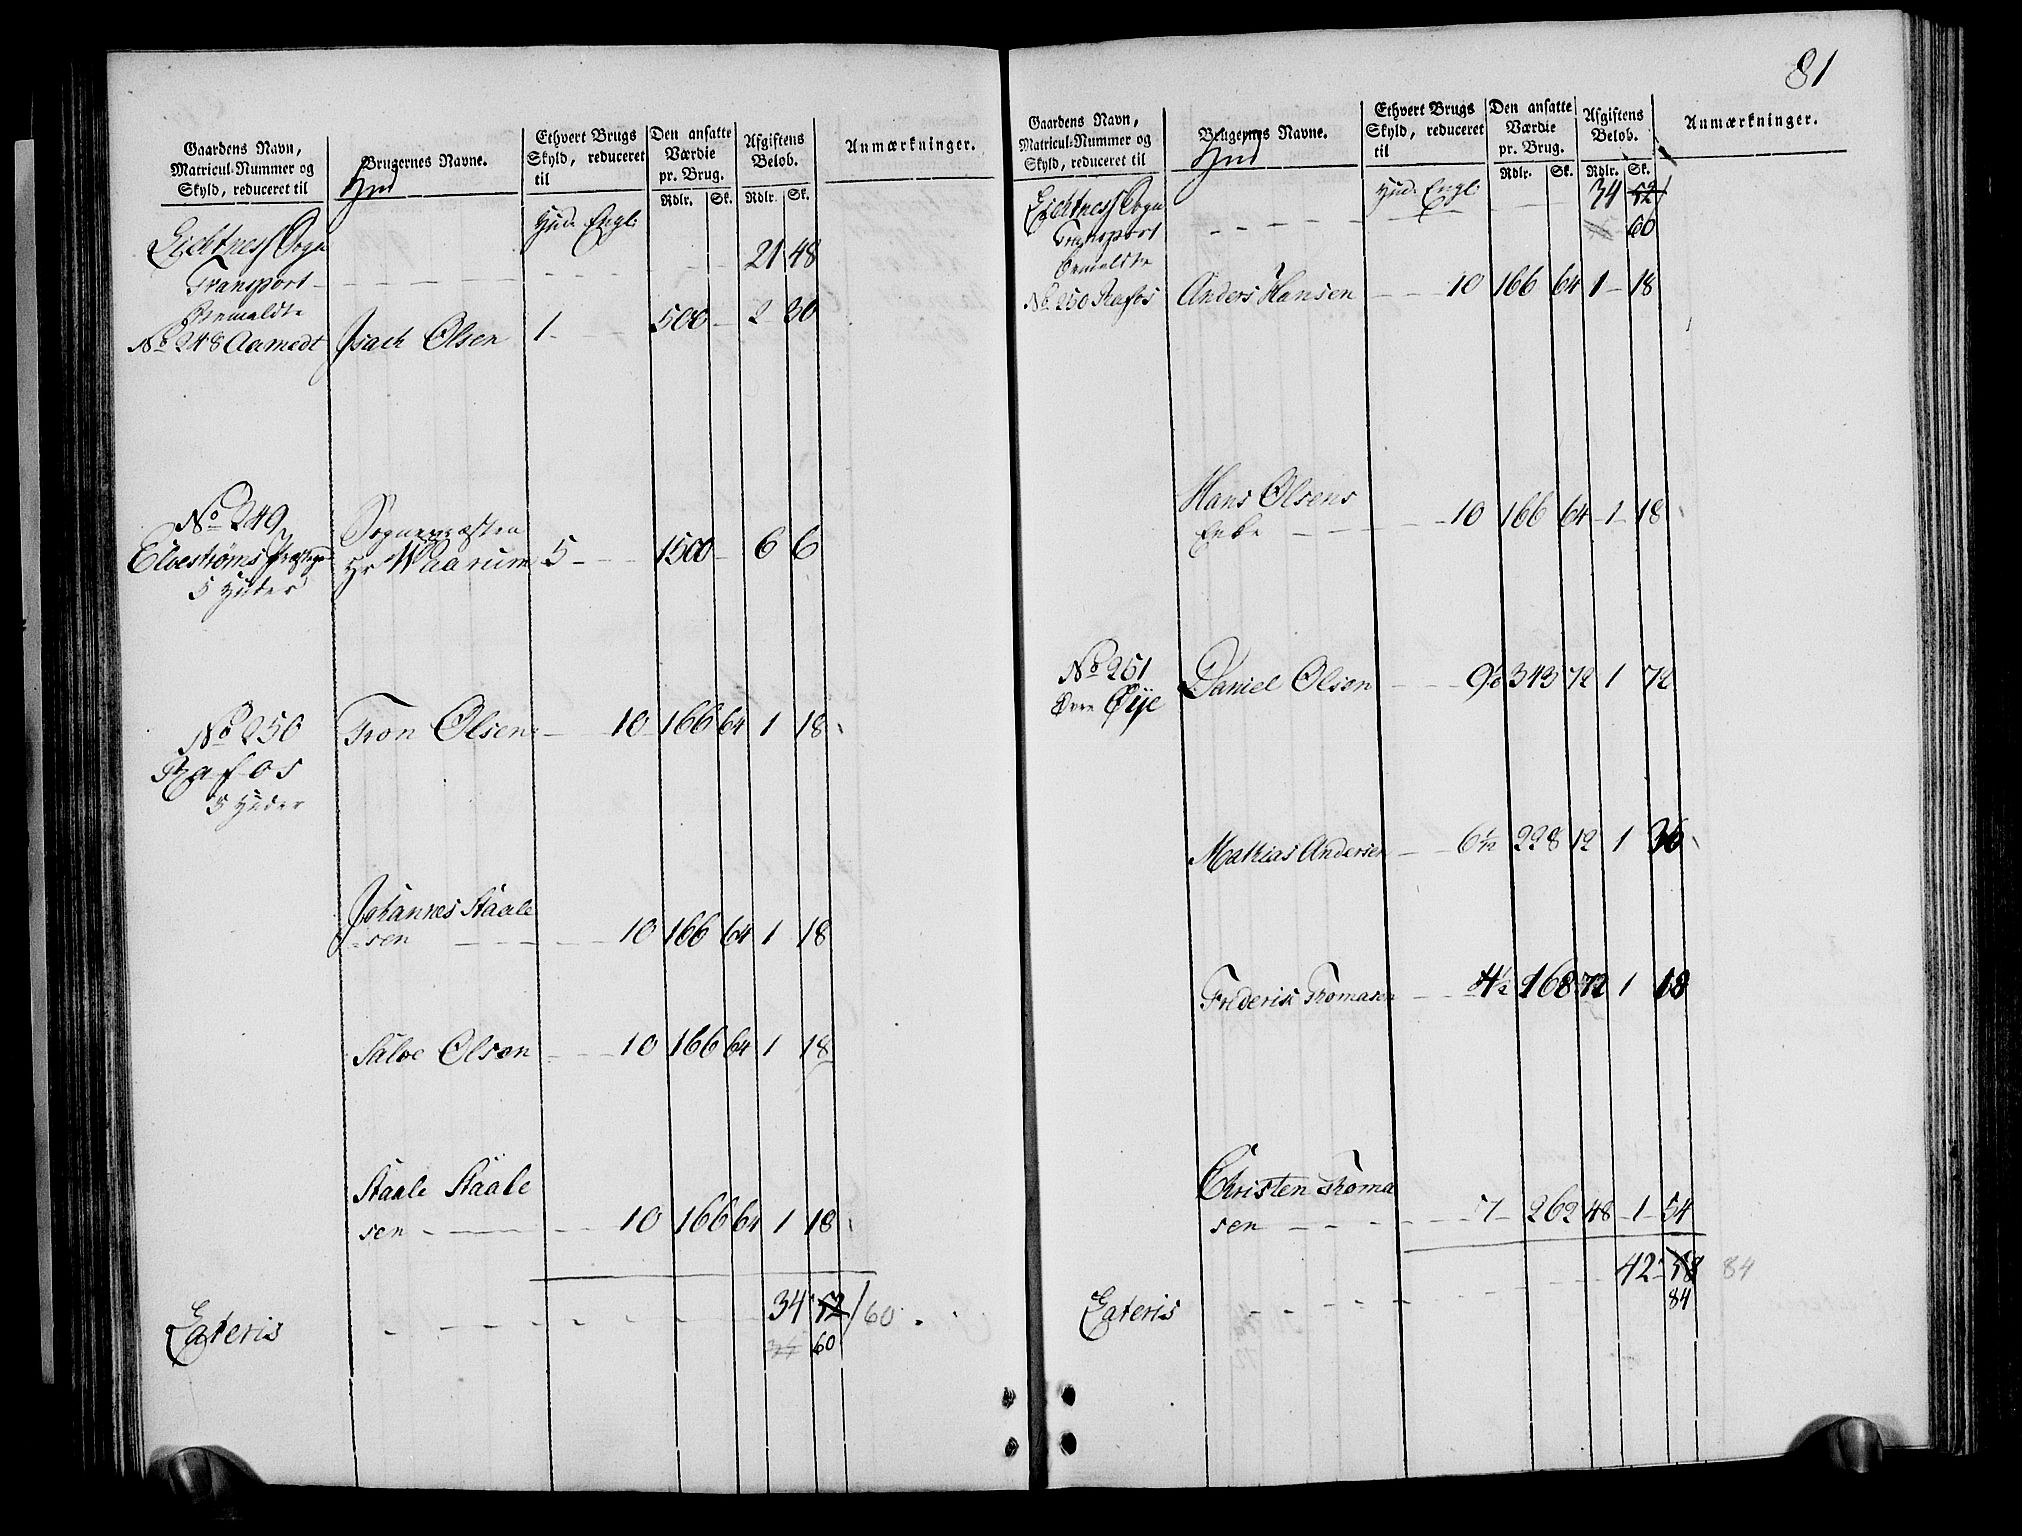 81
Gaardens Navn,
Matricul-Nummer og
Skyld, reduceret til
Brugernes Navne.
Hud
Ethvert Brugs
Skyld, reduceret
til
Den ansatte
Værdie
pr. Brug.
Rdlr. Sk.
Afgiftens
Beløb.
Rdlr. Sk.
Anmærkninger.
Hud. Engl.
Sogn
Transport - - - - - 21 48
No 248 Aamodt Isach Olsen 1 - - 500 - 2 30
No 249 Sognepræsten
Hr Waarum 5 - - 1500 - 6 6
5 Huder
No 250 Tron Olsen - 10 166 64 1 18
Rafos
5 Huder
Johannes Staale
sen - - - 10 166 64 1 18
Salve Olsen - - 10 166 64 1 18
Staale Staale
sen - - - 10 166 64 1 18
Lateris - - - - - 34 52 / 60
60
Gaardens Navn,
Matricul-Nummer og
Skyld, reduceret til
Brugernes Navne.
Hud
Ethvert Brugs
Skyld, reduceret
til
Den ansatte
Værdie
pr. Brug.
Rdlr. Sk.
Afgiftens
Beløb.
Rdlr. Sk.
Anmærkninger.
Hud. Engl.
Sogn 34 52
Transport - - - - 60
No 250 Rafos Anders Hansen - - 10 166 64 1 18
Hans Olsens
Enke - - - 10 166 64 1 18
No 251 Daniel Olsen - - 343 72 1 72
Øvre Øye
Mathias Andersen - 6½ 228 12 1 36
Frederisk Tromasen - 4½ 168 72 1 18
Christen Troma
sen - - - 7 262 48 1 54
42 58 84
Lateris - - - - 84